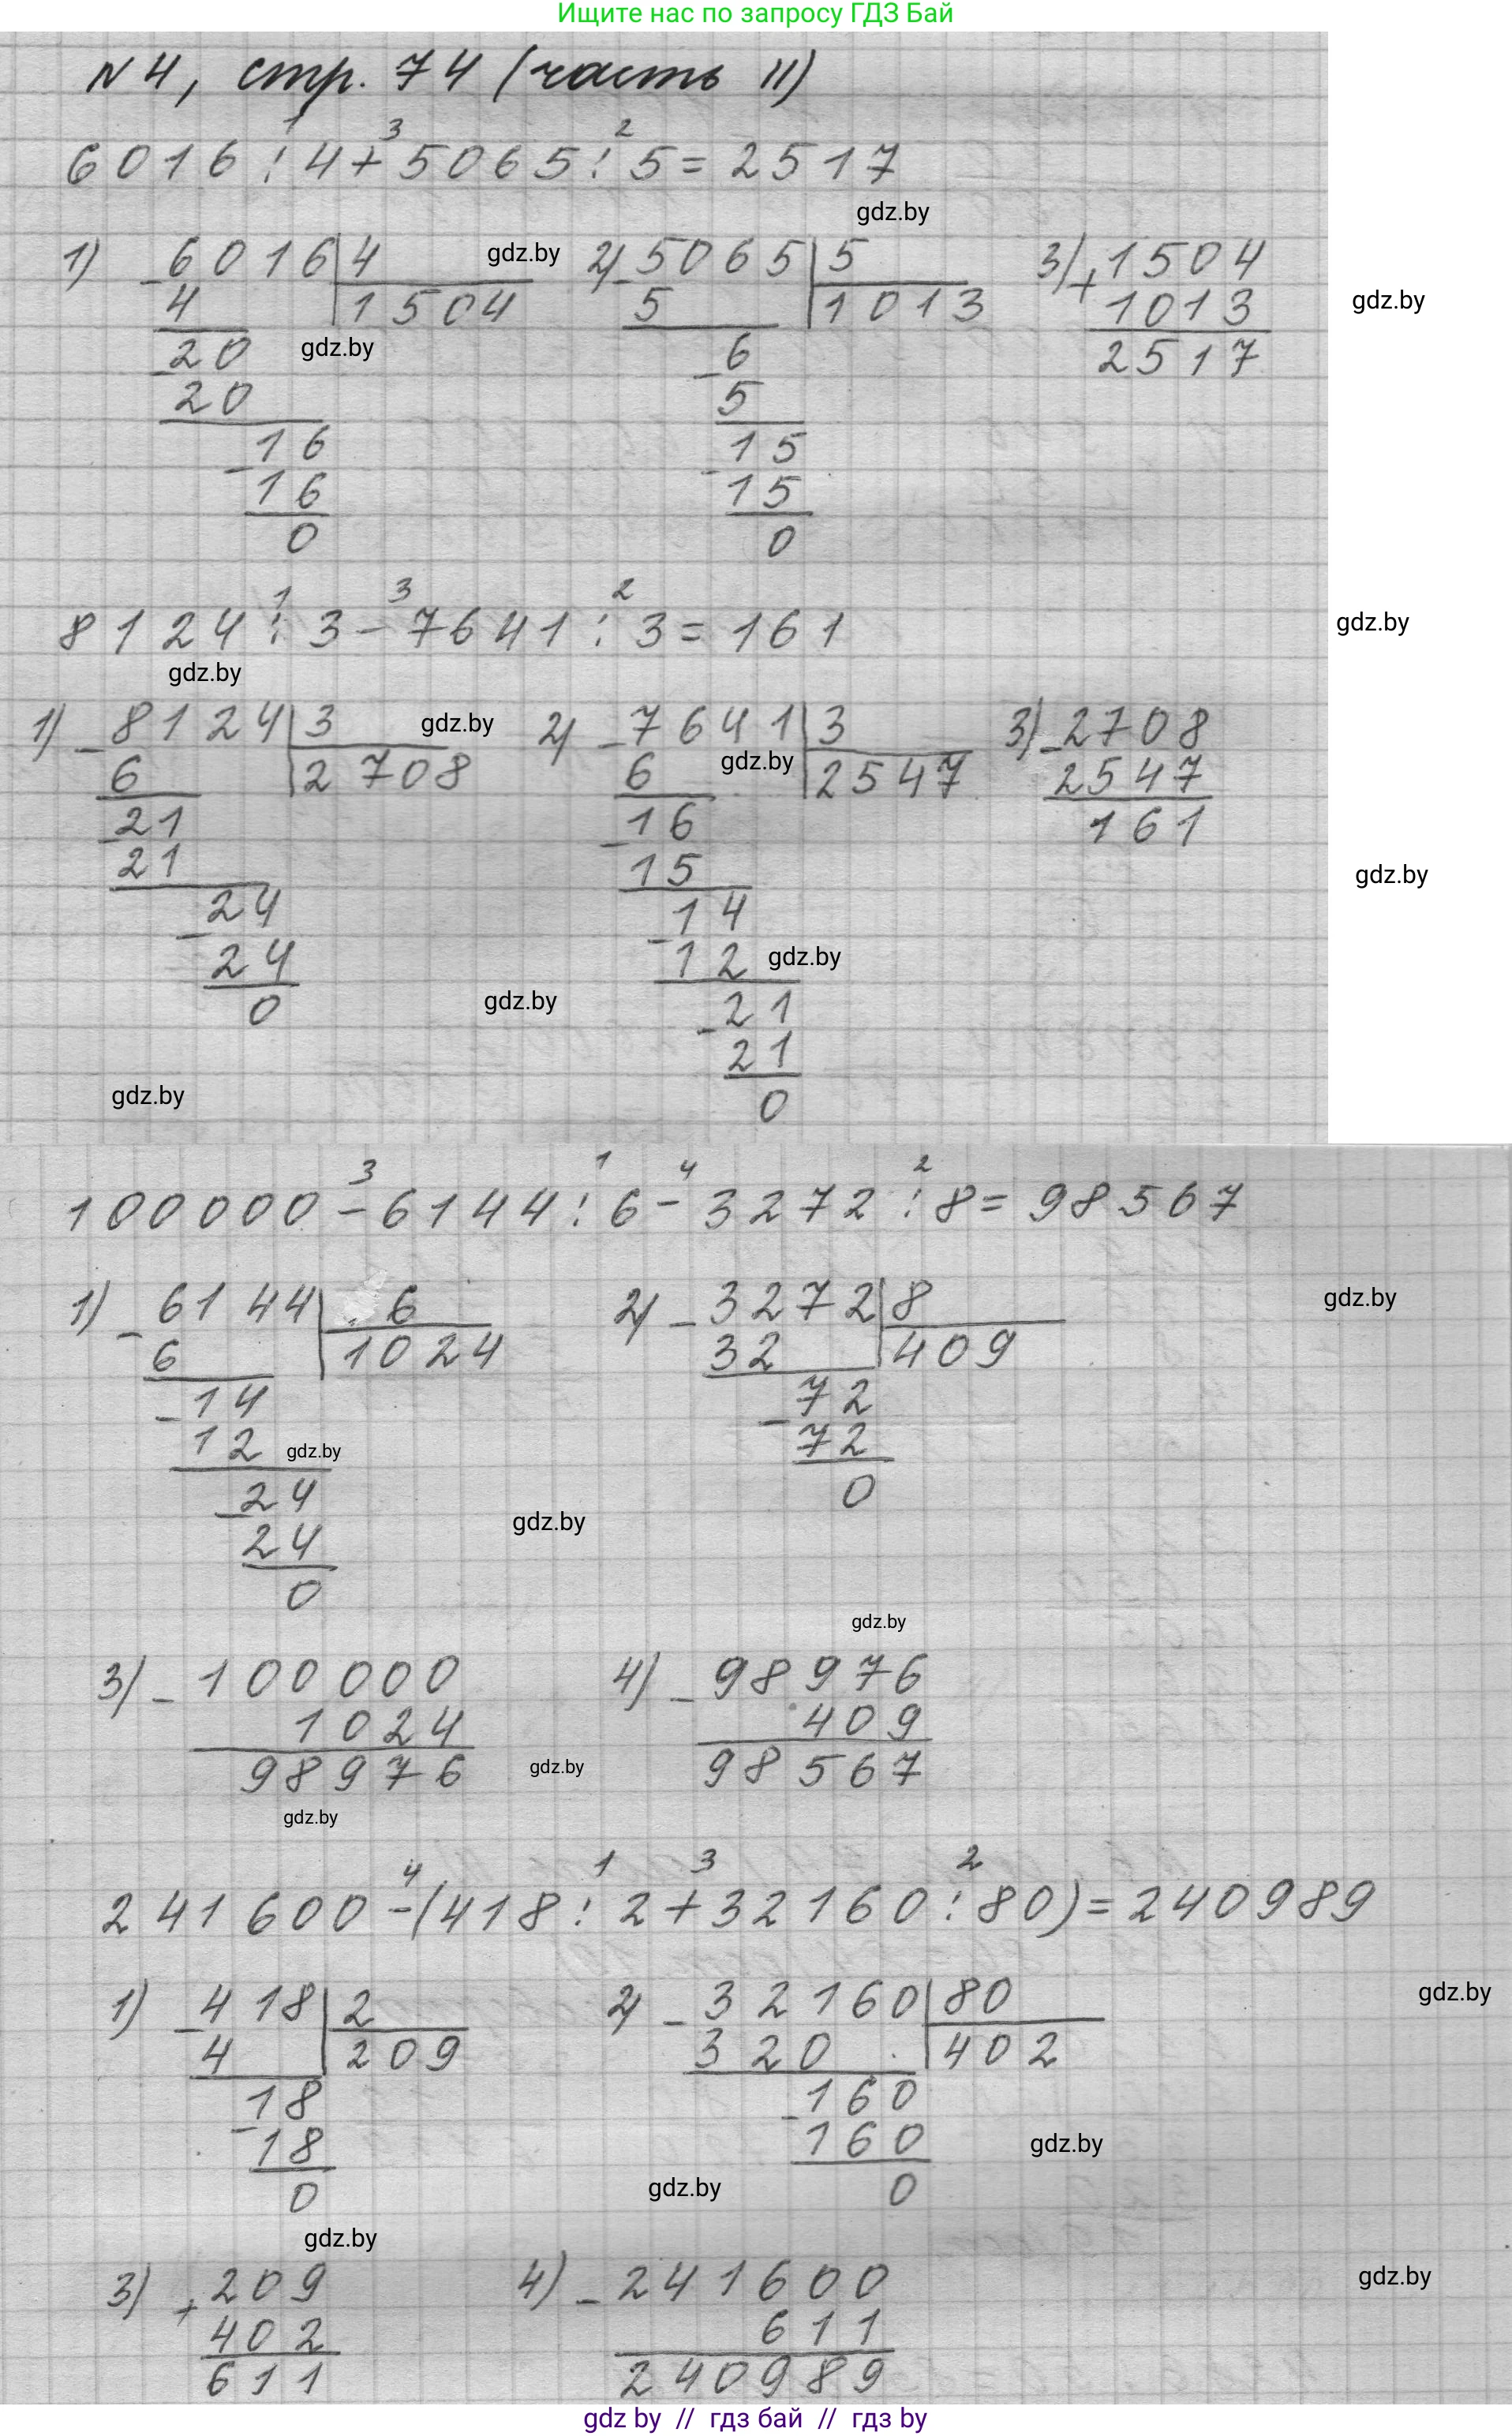 Ищите нас по запросу ГДЗ Бай
N 4, стр. 74 (часть II)
1 3 2
6016 : 4 + 5065 : 5 = 2517
gdz.by
1) - 6016 | 4 gdz.by 2) - 5065 | 5 3) + 1504
4 1504 5 1013 1013 gdz.by
- 20 gdz.by - 6 2517
20 5
- 16 - 15
16 15
0 0
1 3 2
8124 : 3 - 7641 : 3 = 161 gdz.by
gdz.by
1) - 8124 | 3 gdz.by 2) - 7641 | 3 3) - 2708
6 2708 6 gdz.by 2547 2547
- 21 - 16 161
21 15 gdz.by
- 24 - 14
24 12 gdz.by
0 gdz.by - 21
21
gdz.by 0
3 1 4 2
100000 - 6144 : 6 - 3272 : 8 = 98567
1) - 6144 | 6 2) - 3272 | 8 gdz.by
6 1024 32 409
- 14 - 72
12 gdz.by 72
- 24 0
24 gdz.by
0
gdz.by
3) - 100000 4) - 98976
1024 409
98976 gdz.by 98567
gdz.by
4 1 3 2
241600 - (418 : 2 + 32160 : 80) = 240989
1) - 418 | 2 2) - 32160 | 80 gdz.by
4 209 320 402
- 18 - 160
18 160 gdz.by
0 gdz.by 0
gdz.by
3) + 209 4) - 241600 gdz.by
402 611
611 240989
gdz by // гдз бай // гдз by